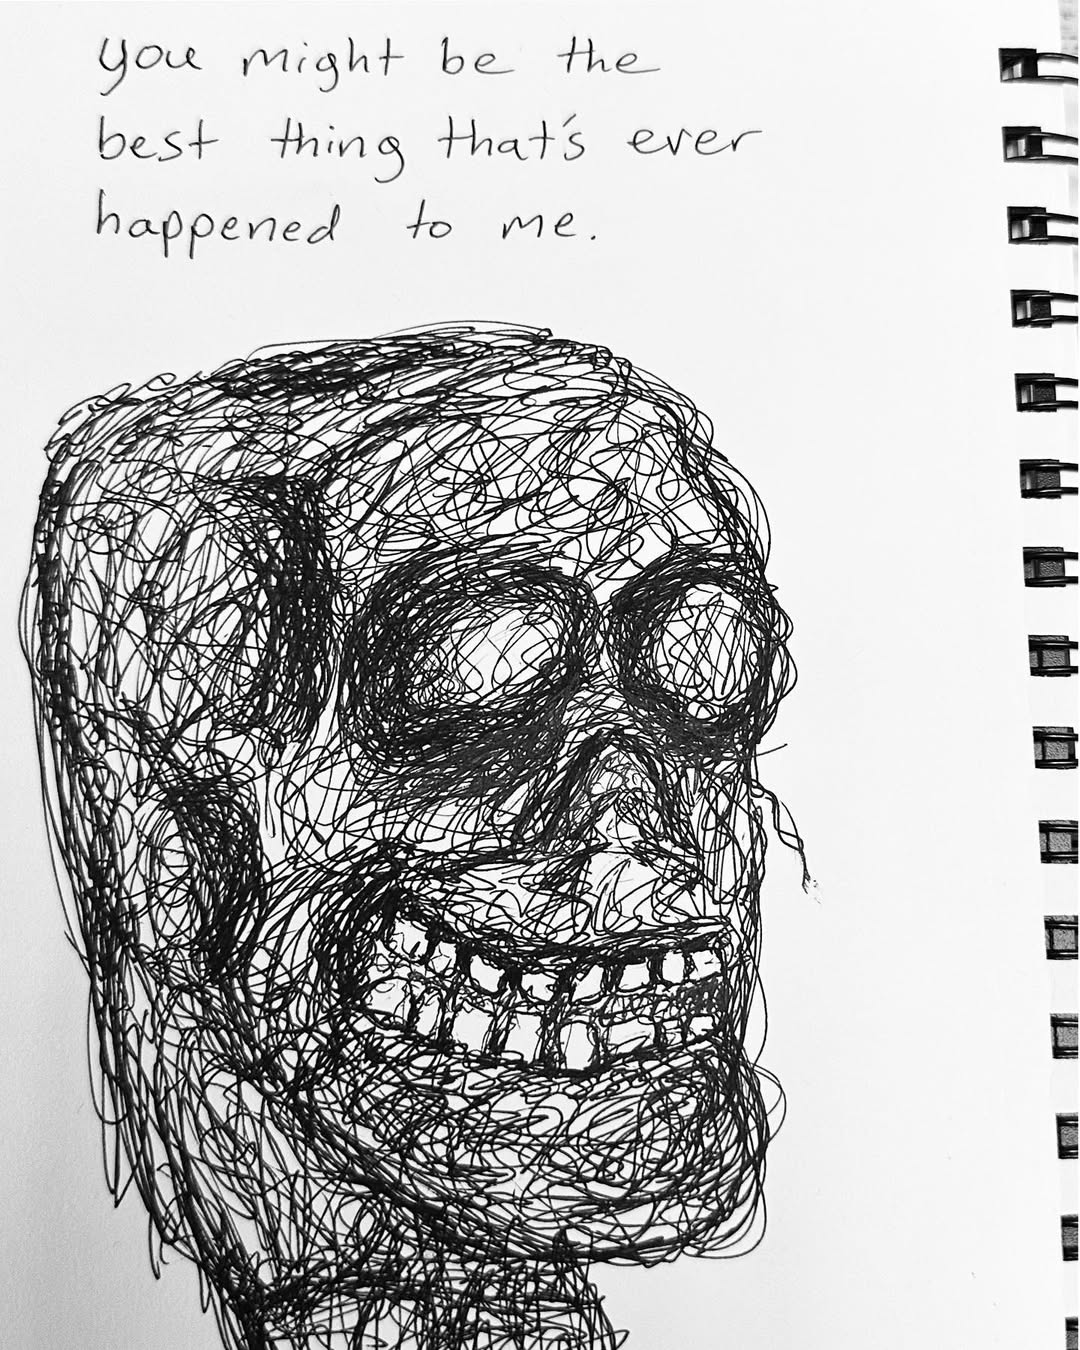 you might be the
best thing that's ever
happened to me.